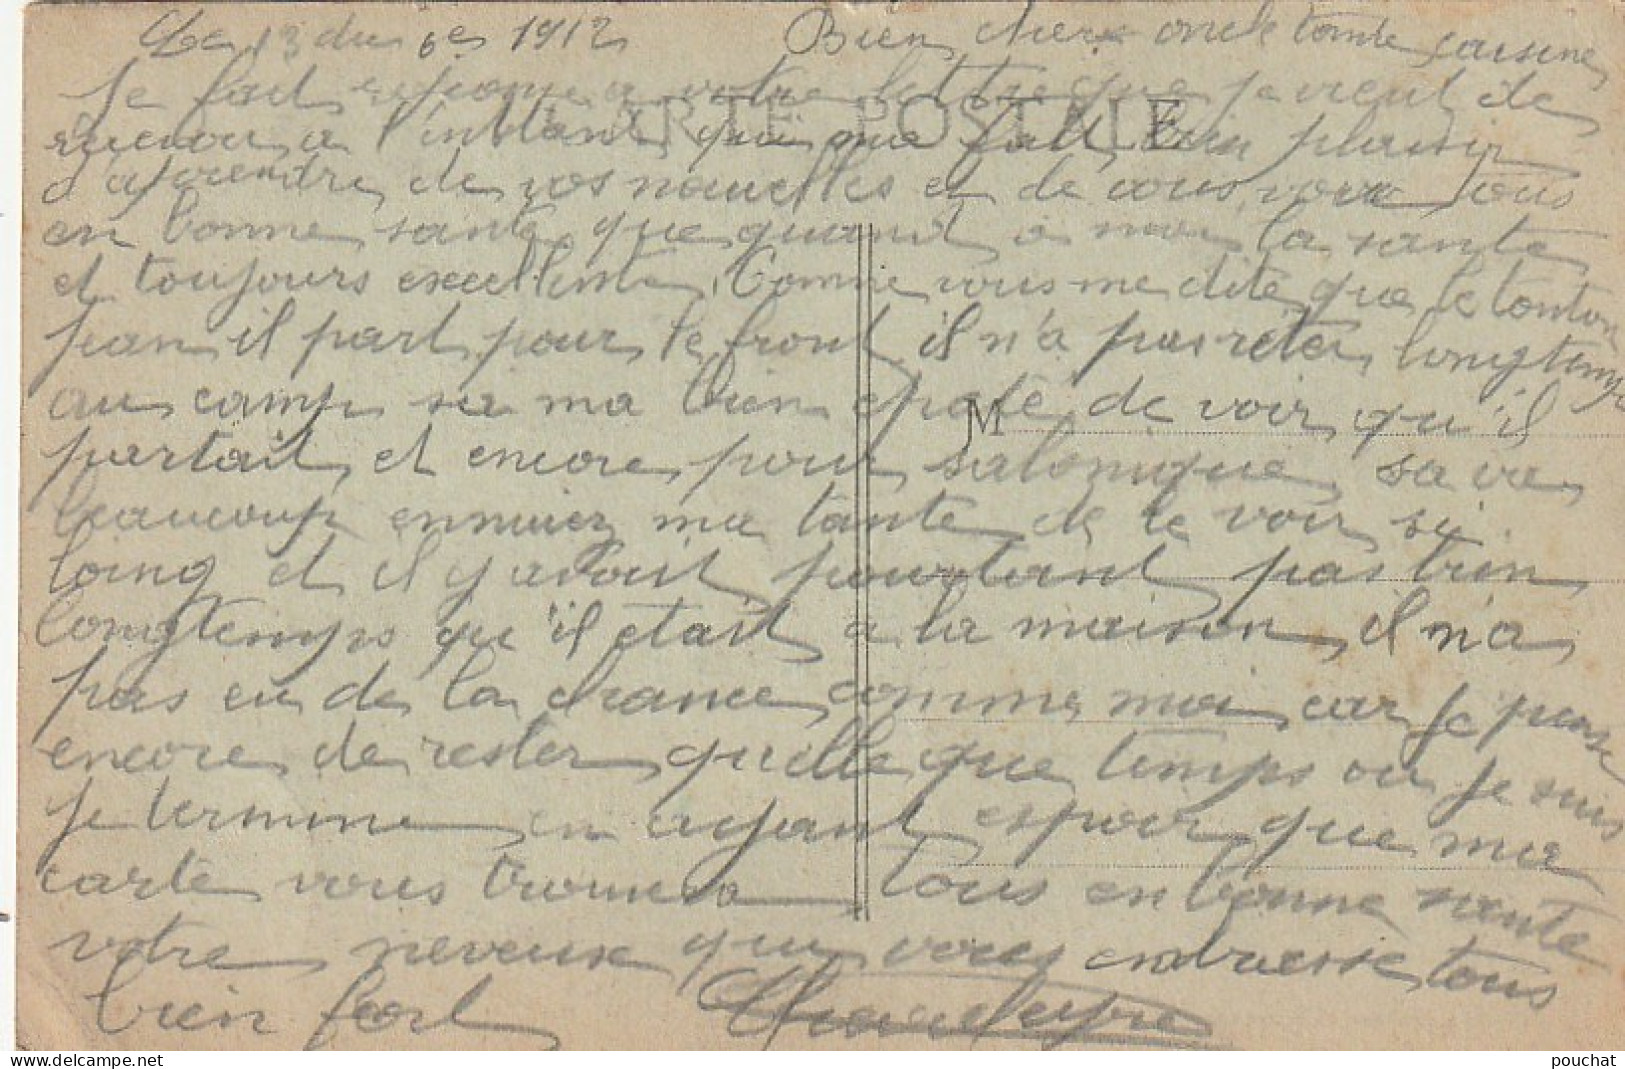 Le 13 du 6e 1917 Bien chers oncle tante cousine
Je fait reponse a votre lettre que je vient de
recevoir a l'instant qui me fait bien plaisir
d'aprendre de vos nouvelles et de vous voire tous
en bonne sante que quand a moi la sante
et toujours excellente. Comme vous me dite que le tonton
Jean il part pour le front il n'a pas rester longtemps
au camp sa ma bien epaté de voir qu'il
partait et encore pour salonique sa va
beaucoup ennuiez ma tante de le voir si
loing et il y avait pourtant pas bien
longtemps qu'il etait a la maison, il n'a
pas eu de la chance comme moi car je pense
encore de rester quelle que temps ou je suis
je termine en ayant espoir que ma
carte vous trouvera tous en bonne sante
votre neveux qui vous embrasse tous
bien fort
CARTE POSTALE
M
pouchat